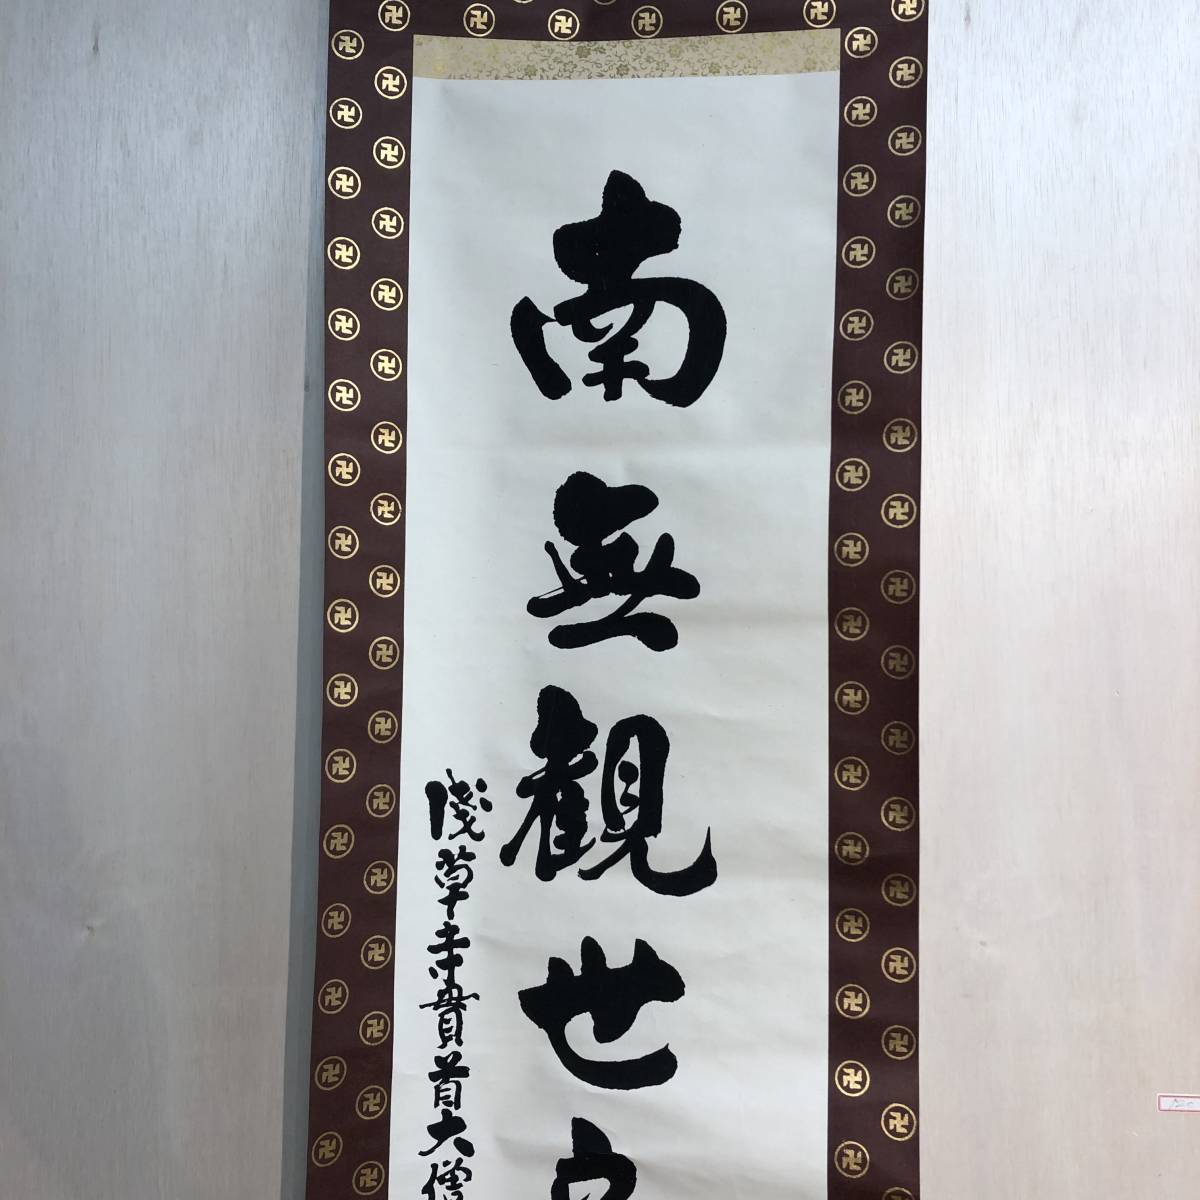 南無観世
浅草寺貫首大僧